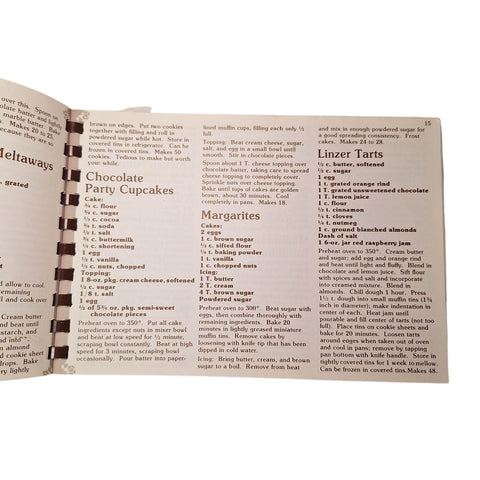 over this. Spoon on
chocolate batter and lightly
marble batter. Bake
Makes 20 to 25.
because they are so
Meltaways
grated
d allow to cool.
remaining
ll and cook over
Cream butter
and beat until
n almond
cookie sheet
drops. Bake
very lightly
brown on edges. Put two cookies
together with filling and roll in
powdered sugar while hot. Store in
covered tins in refrigerator. Can be
frozen in covered tins. Makes 50
cookies. Tedious to make but worth
your while.
Chocolate
Party Cupcakes
Cake:
¾ c. flour
¾ c. sugar
½ c. cocoa
¾ t. soda
½ t. salt
¾ c. buttermilk
½ c. shortening
1 egg
½ t. vanilla
½ c. nuts, chopped
Topping:
1 6 oz. pkg. cream cheese, softened
¼ c. sugar
1/8 t. salt
1 egg
½ of 5¾ oz. pkg. semi-sweet
chocolate pieces
Preheat oven to 350°. Put all cake
ingredients except nuts in mixer bowl
and beat at low speed for ½ minute,
scraping bowl constantly. Beat at high
speed for 3 minutes, scraping bowl
occasionally. Pour batter into paper-
lined muffin cups, filling each only ½
full.
Topping: Beat cream cheese, sugar,
salt, and egg in a small bowl until
smooth. Stir in chocolate pieces.
Spoon about 1 T. cheese topping over
chocolate batter, taking care to spread
cheese topping to completely cover.
Sprinkle nuts over cheese topping.
Bake until tops of cakes are golden
brown, about 30 minutes. Cool
completely in pans. Makes 18.
Margarites
Cakes:
2 eggs
1 c. brown sugar
½ c. sifted flour
¼ t. baking powder
1 t. vanilla
1 c. chopped nuts
Icing:
1 T. butter
2 T. cream
4 T. brown sugar
Powdered sugar
Preheat oven to 300°. Beat sugar with
eggs, then combine thoroughly with
remaining ingredients. Bake 20
minutes in lightly greased miniature
muffin tins. Remove cakes by
loosening with knife tip that has been
dipped in cold water.
Icing: Bring butter, cream, and brown
sugar to a boil. Remove from heat
15
and mix in enough powdered sugar for
a good spreading consistency. Frost
cakes. Makes 24 to 28.
Linzer Tarts
½ c. butter, softened
½ c. sugar
1 egg
1 t. grated orange rind
1 T. grated unsweetened chocolate
1 T. lemon juice
1 c. flour
½ t. cinnamon
¼ t. cloves
¼ t. nutmeg
1 c. ground blanched almonds
Dash of salt
1 6-oz. jar red raspberry jam
Preheat oven to 350°. Cream butter
and sugar; add egg and orange rind
and beat until light and fluffy. Blend in
chocolate and lemon juice. Sift flour
with spices and salt and incorporate
into creamed mixture. Blend in
almonds. Chill dough 1 hour. Press in
1½ t. dough into small muffin tins (1¾
inch diameter); make indentation in
center of each. Heat jam until
pourable and fill center of tarts (not too
full). Place tins on cookie sheets and
bake for 20 minutes. Loosen tarts
around edges when taken out of oven
and cool in pans; remove by tapping
pan bottom with knife handle. Store in
tightly covered tins for 1 week to mellow.
Can be frozen in covered tins. Makes 48.